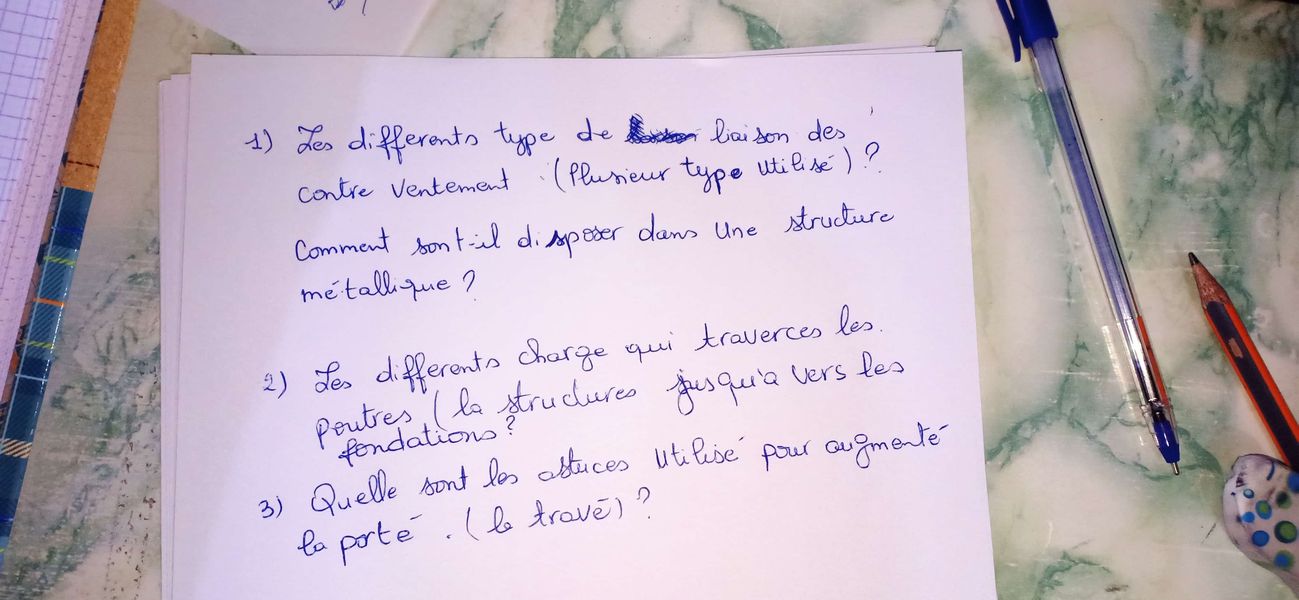 1) Les differents type de liaison des
contre ventement . (Plusieur type utilisé) ?
Comment sont-il disposer dans Une structure
métallique ?
2) Les differents charge qui traverces les
poutres (la structures jusqu'a vers les
fondations ?
3) Quelle sont les astuces Utilisé pour augmenté
la porté . (le travé) ?